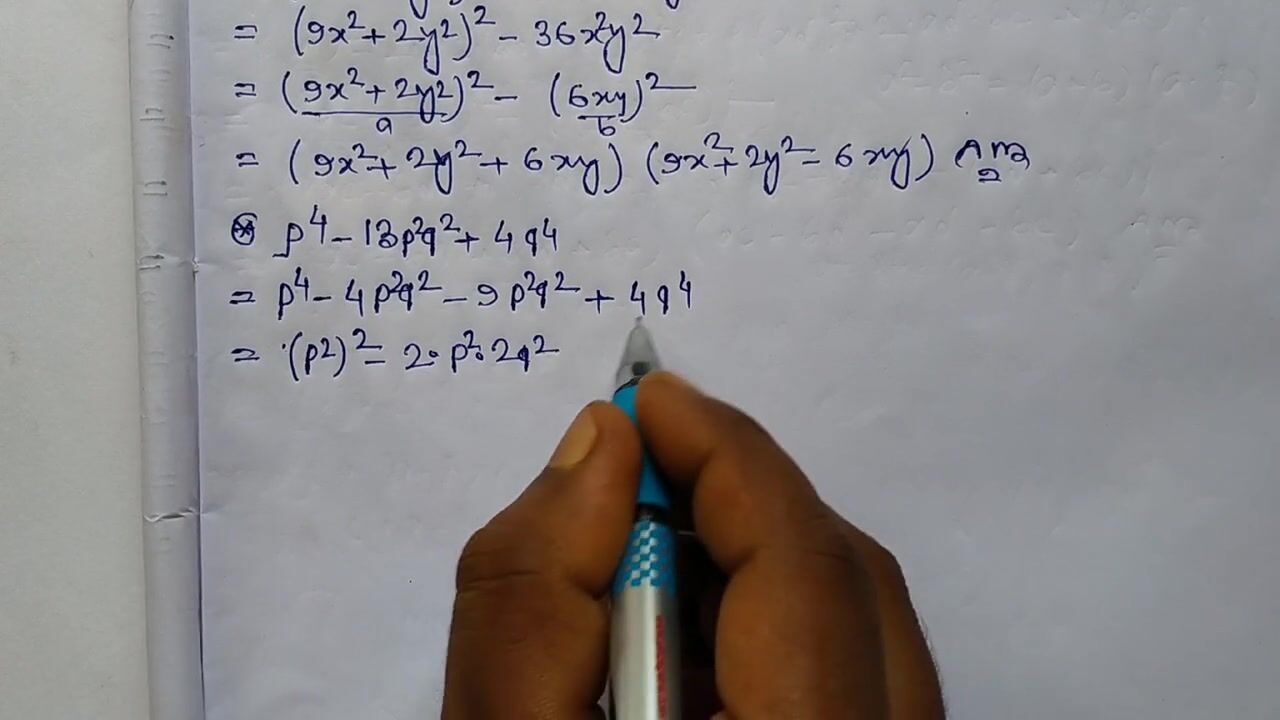 = (9x²+2y²)² - 36x²y²
= (9x²+2y²)² - (6xy)²
a b
= (9x²+2y²+6xy) (9x²+2y²-6xy) Ans
⊛ p⁴ - 13p²q² + 4q⁴
= p⁴ - 4p²q² - 9p²q² + 4q⁴
= (p²)² - 2·p²·2q²